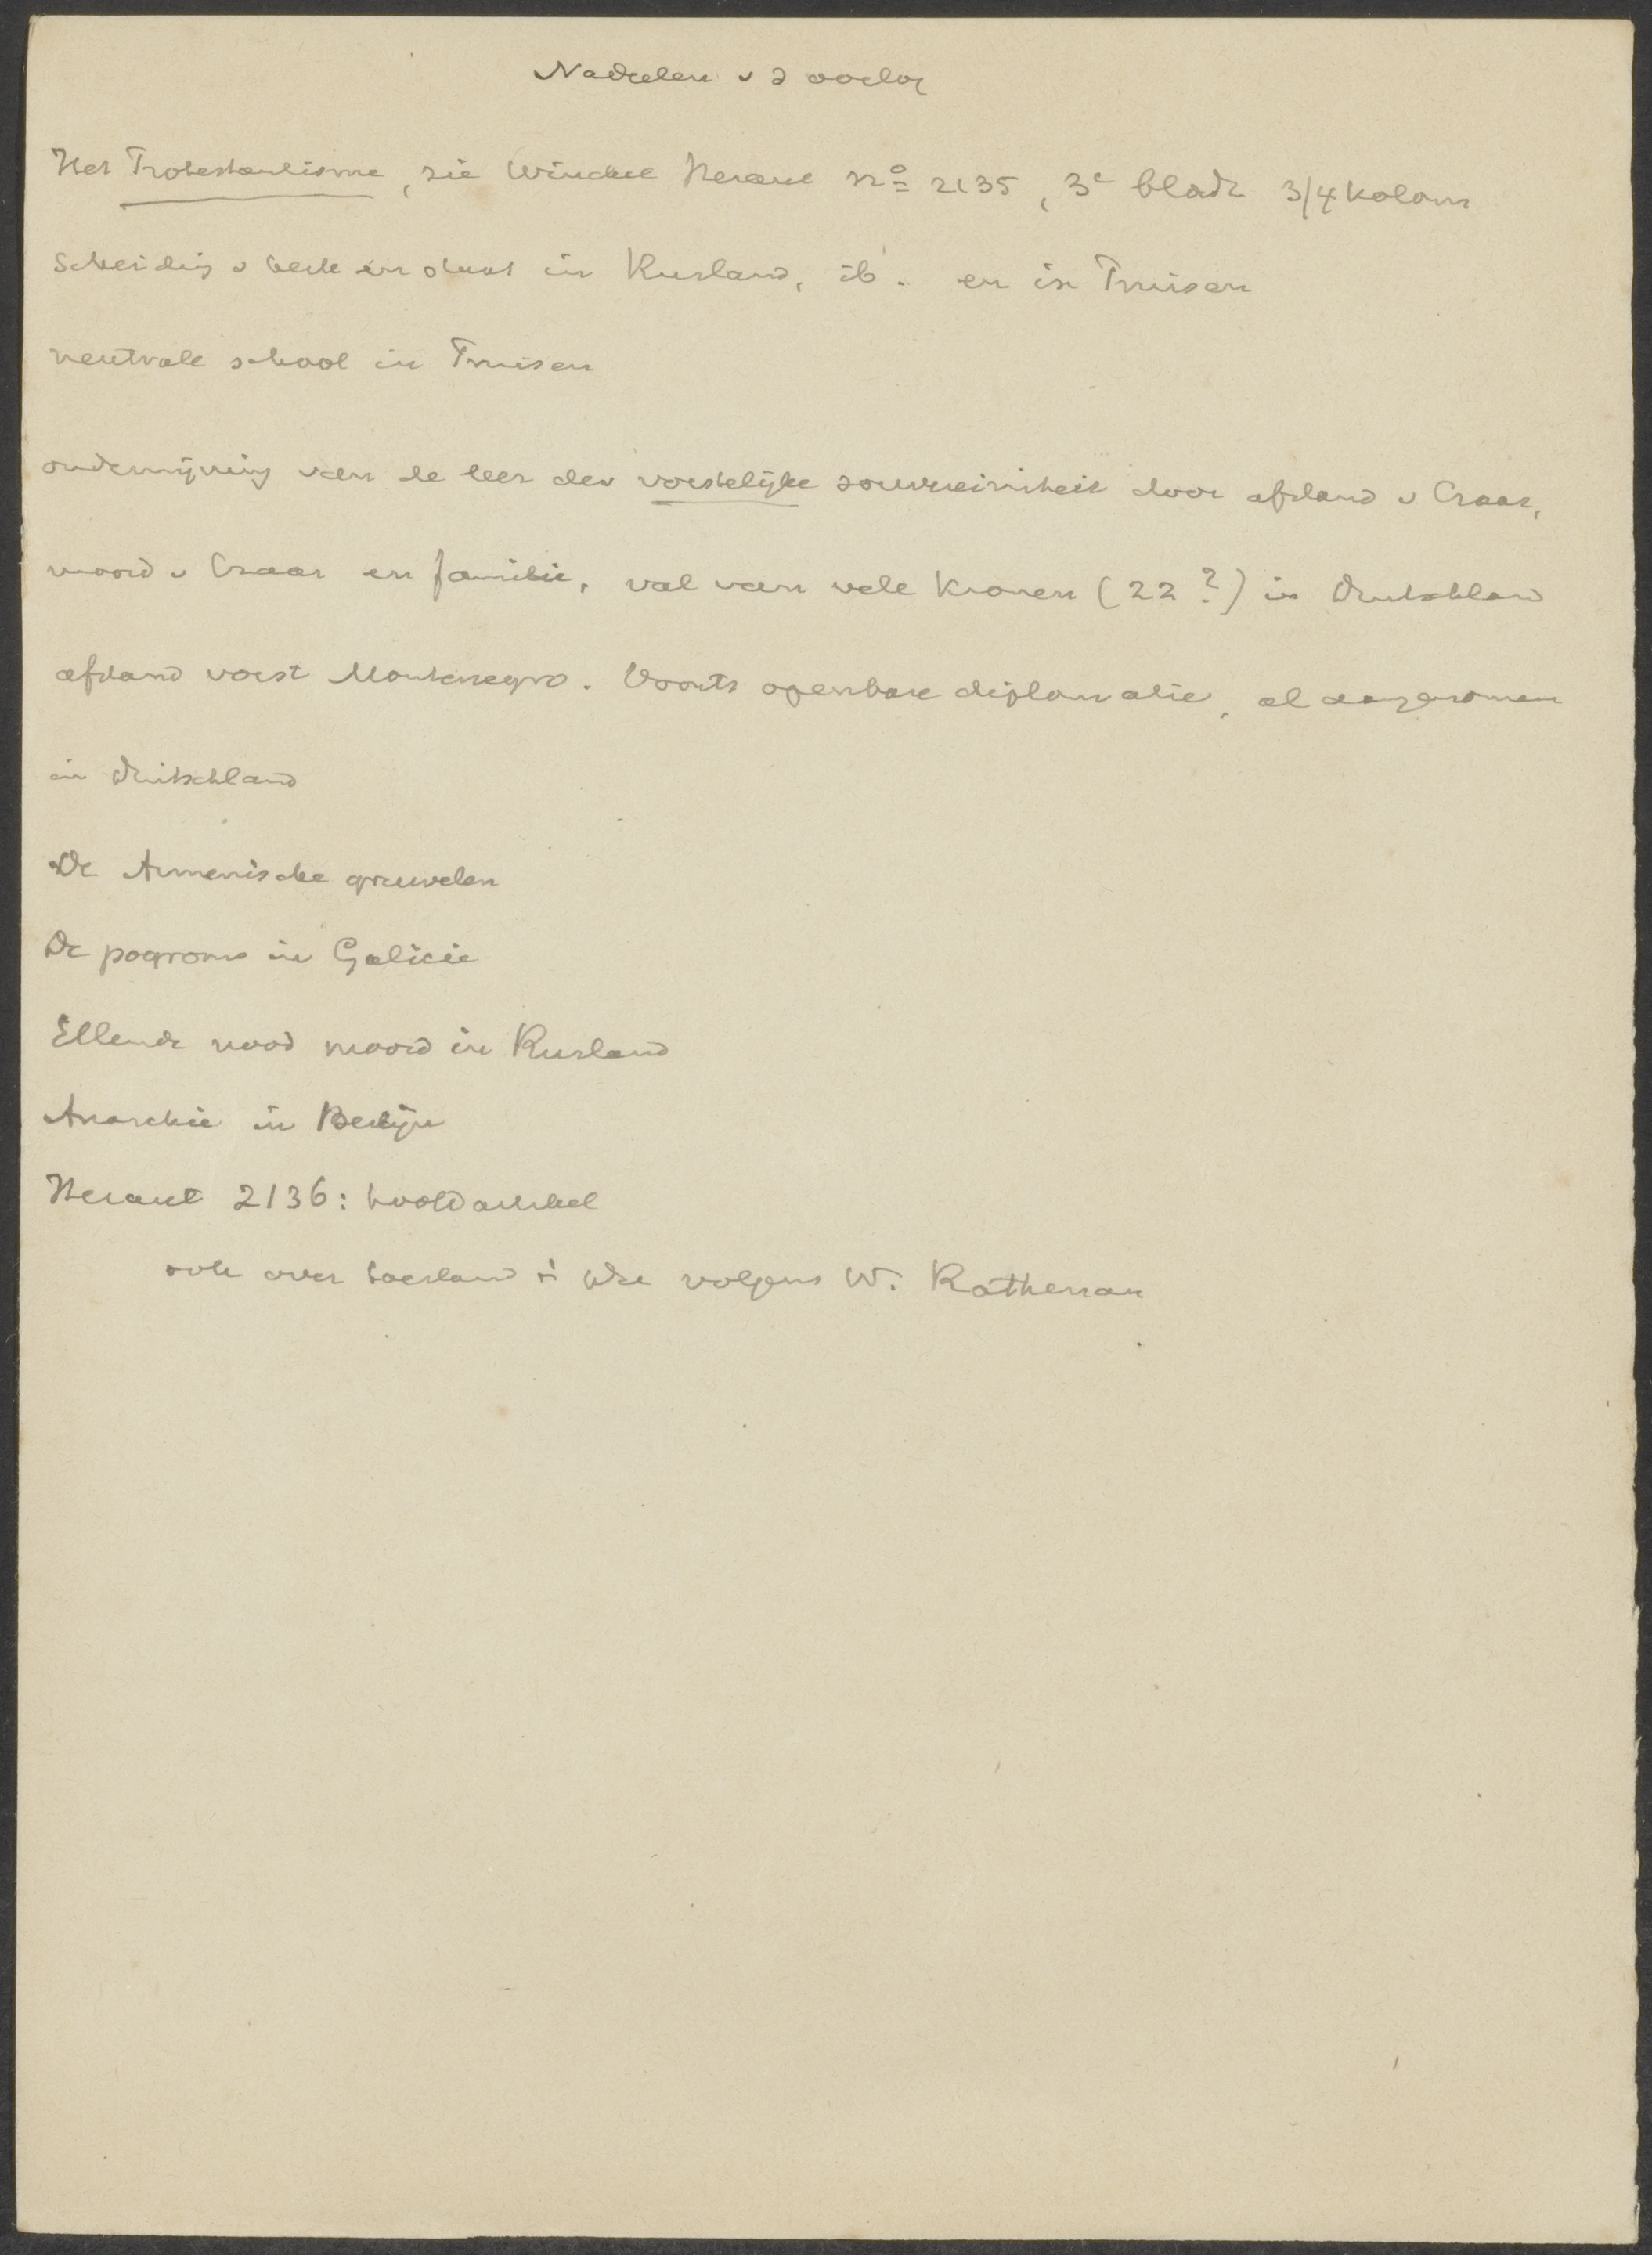 Nadeelen v d oorlog
Het Protestantisme, zie Winckel Heraut no 2135, 3e bladz 3/4 kolom
Scheiding v kerk en staat in Rusland, ib. en in Pruisen
neutrale school in Pruisen
ondermijning van de leer der vorstelijke souvereiniteit door afstand v Czaar,
moord v Czaar en familie, val van vele kronen (22?) in Duitschland
afstand vorst Montenegro. Voorts openbare diplomatie, al aangenomen
in Duitschland
De Armenische gruwelen
De pogroms in Galicie
Ellende nood moord in Rusland
Anarchie in Berlijn
Heraut 2136: hoofdartikel
ook over toestand volgens W. Rathenau